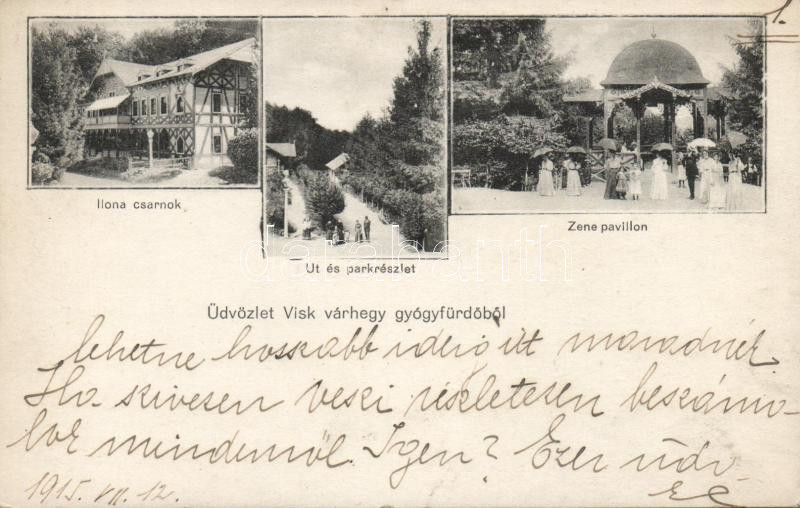 1.
Ilona csarnok
Ut és parkrészlet
Zene pavillon
darabanth
Üdvözlet Visk várhegy gyógyfürdőből
lehetne hosszabb ideig itt maradnék.
Ha szivesen veszi részletesen beszámo-
lok mindenről. Igen? Ezer üdv.
1915. VII. 12.